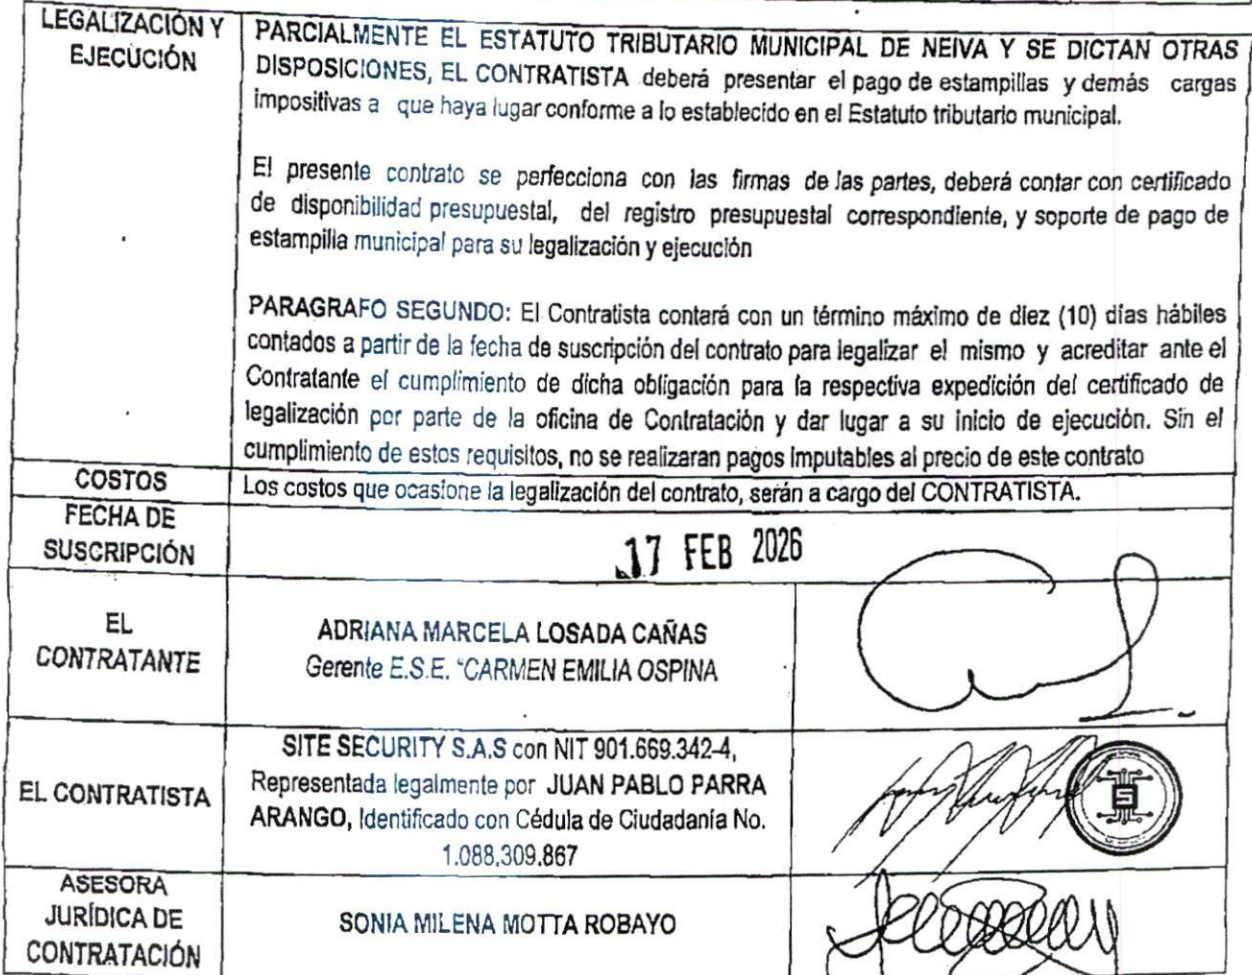 LEGALIZACIÓN Y
EJECUCIÓN
PARCIALMENTE EL ESTATUTO TRIBUTARIO MUNICIPAL DE NEIVA Y SE DICTAN OTRAS
DISPOSICIONES, EL CONTRATISTA deberá presentar el pago de estampillas y demás cargas
impositivas a que haya lugar conforme a lo establecido en el Estatuto tributario municipal.
El presente contrato se perfecciona con las firmas de las partes, deberá contar con certificado
de disponibilidad presupuestal, del registro presupuestal correspondiente, y soporte de pago de
estampilla municipal para su legalización y ejecución
PARAGRAFO SEGUNDO: El Contratista contará con un término máximo de diez (10) días hábiles
contados a partir de la fecha de suscripción del contrato para legalizar el mismo y acreditar ante el
Contratante el cumplimiento de dicha obligación para la respectiva expedición del certificado de
legalización por parte de la oficina de Contratación y dar lugar a su inicio de ejecución. Sin el
cumplimiento de estos requisitos, no se realizaran pagos imputables al precio de este contrato
COSTOS
Los costos que ocasione la legalización del contrato, serán a cargo del CONTRATISTA.
FECHA DE
SUSCRIPCIÓN
17 FEB 2026
EL
CONTRATANTE
ADRIANA MARCELA LOSADA CAÑAS
Gerente E.S.E. "CARMEN EMILIA OSPINA
EL CONTRATISTA
SITE SECURITY S.A.S con NIT 901.669.342-4,
Representada legalmente por JUAN PABLO PARRA
ARANGO, Identificado con Cédula de Ciudadanía No.
1.088.309.867
S
ASESORA
JURÍDICA DE
CONTRATACIÓN
SONIA MILENA MOTTA ROBAYO